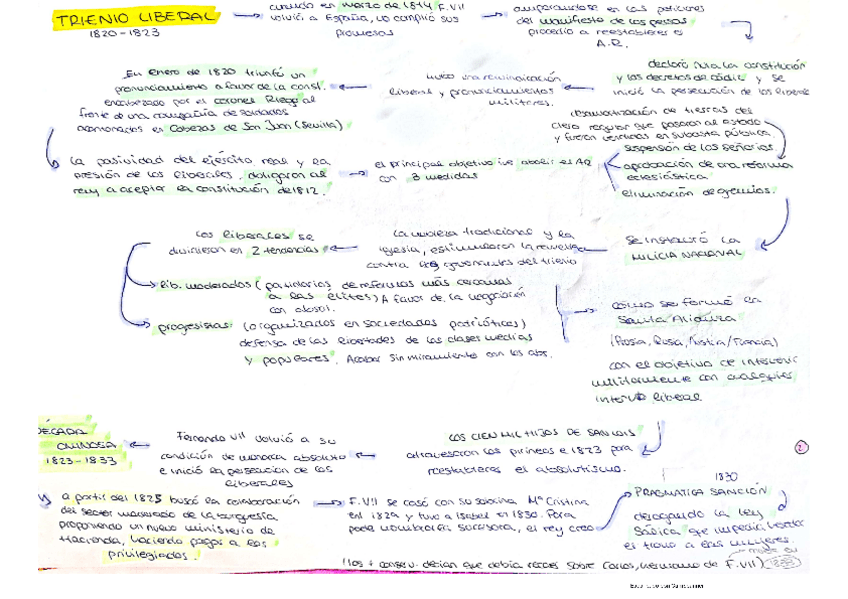 TRIENIO LIBERAL
1820-1823
cuando en marzo de 1814 F.VII
volvió a España, no cumplió sus
promesas
amparandose en las peticiones
del manifiesto de los persas
procedió a reestablecer el
A.R.
declaró nula la constitución
y los decretos de Cádiz y se
inició la persecución de los liberales
hubo una reivindicación
liberal y pronunciamientos
militares.
En enero de 1820 triunfó un
pronunciamiento a favor de la const.
encabezado por el coronel Riego al
frente de una compañía de soldados
acantonados en Cabezas de San Juan (Sevilla)
la pasividad del ejército real y la
presión de los liberales, obligaron al
rey a aceptar la constitución de 1812.
el principal objetivo fue abolir el AR
con 3 medidas
desamortización de tierras del
clero regular que pasaron al estado
y fueron vendidas en subasta pública.
suspensión de los señoríos.
aprobación de una reforma
eclesiástica
eliminación de gremios.
se instauró la
MILICIA NACIONAL
La nobleza tradicional y la
iglesia, estimularon la revuelta
contra los gobernantes del trienio
Los liberales se
dividieron en 2 tendencias
lib. moderados (partidarios de reformas más cercanas
a las élites) A favor de la negociación
con absol.
progesistas: (organizados en sociedades patrióticas)
defensa de las libertades de las clases medias
y populares. Acabar sin miramiento con los abs.
como se formó en
Santa Alianza
(Prusia, Rusia, Austria/Francia)
con el objetivo de intervenir
militarmente con cualquier
liberal
LOS CIEN MIL HIJOS DE SAN LUIS
atravesaron los pirineos e 1823 para
reestablecer el absolutismo.
Fernando VII volvió a su
condición de monarca absoluto
e inició la persecución de los
liberales
DÉCADA
OMINOSA
1823-1833
2
a partir del 1825 buscó la colaboración
del sector moderado de la burguesía
proponiendo un nuevo ministerio de
Hacienda, haciendo pagar a los
privilegiados.
F.VII se casó con su sobrina Mª Cristina
en 1829 y tuvo a Isabel en 1830. Para
poder nombrarla sucesora, el rey creó
1830
PRAGMÁTICA SANCIÓN
derogando la ley
Sálica que impedía heredar
el trono a las mujeres.
los + conserv. decían que debía recaer sobre Carlos, hermano de F.VII)
1833